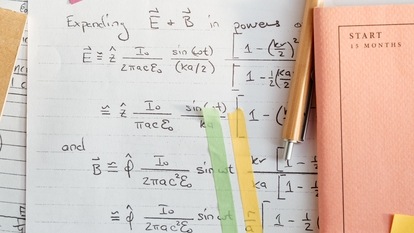 Expanding E⃗ & B⃗ in powers o
E⃗ ≅ ẑ I₀/2πacε₀ sin(ωt)/(ka/2) [1 - (kr/2)²
[1 - ½(ka
≅ ẑ I₀/πacε₀ sin(ωt)/ka [1 - (
and
B⃗ ≅ φ̂ I₀/2πac²ε₀ sinωt kr/ka [1 - ½
[1 - ½
≅ φ̂ I₀/2πac²ε₀ sinωt r/a [1 - ½
START
15 MONTHS